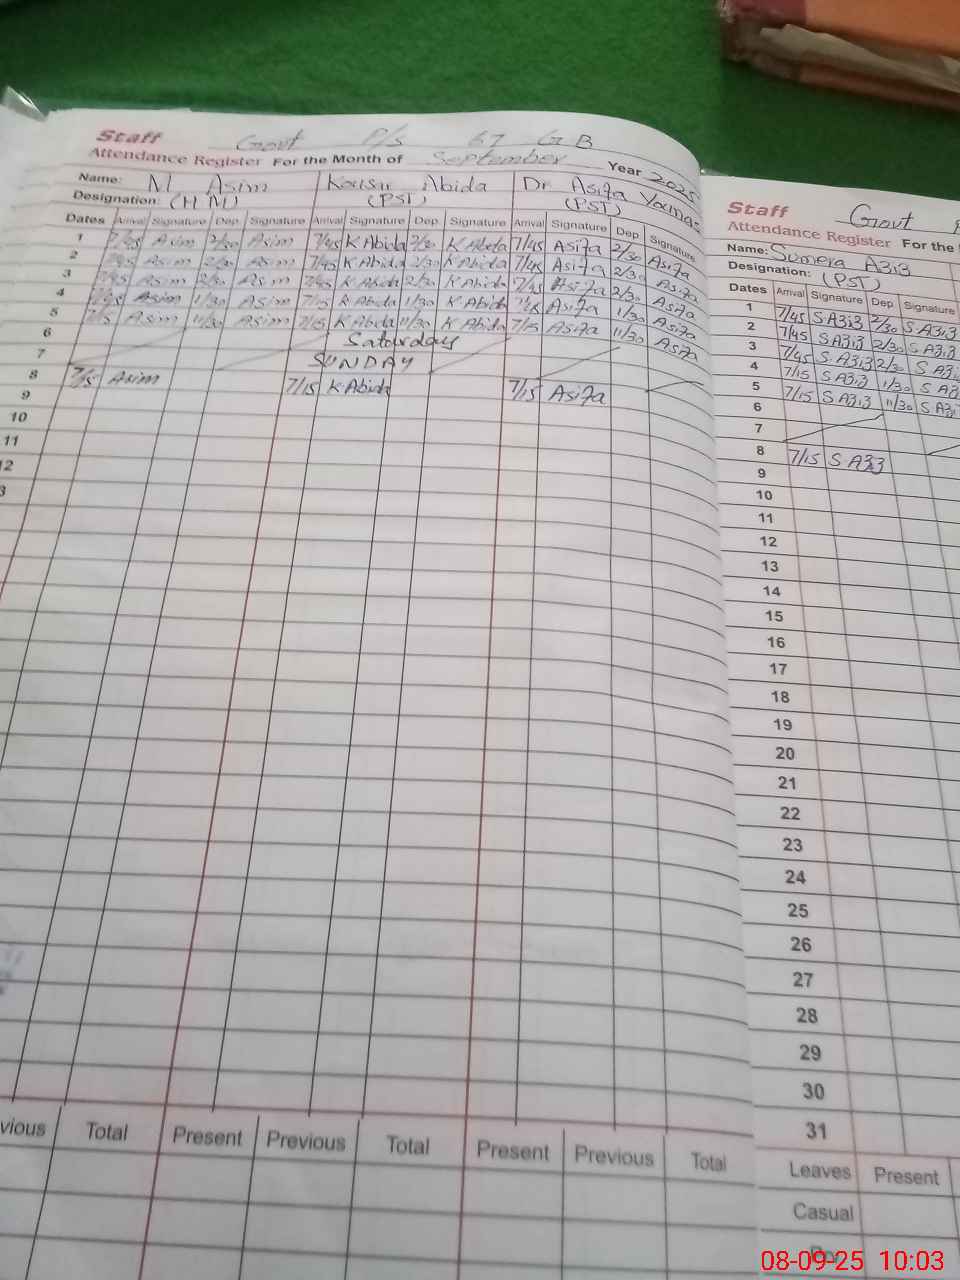 Staff Govt P/S 67 GB
Attendance Register For the Month of September Year 2025
Name: M. Asim Kousar Abida Dr. Asifa
Designation: (HM) (PST) (PST)
Dates Arrival Signature Dep Signature Arrival Signature Dep Signature Arrival Signature Dep Signature
1 7/45 Asim 2/30 Asim 7/45 K Abida 2/30 K Abida 7/45 Asifa 2/30 Asifa
2 7/45 Asim 2/30 Asim 7/45 K Abida 2/30 K Abida 7/45 Asifa 2/30 Asifa
3 7/45 Asim 2/30 Asim 7/45 K Abida 2/30 K Abida 7/45 Asifa 2/30 Asifa
4 Asim 1/30 Asim 7/15 K Abida 1/30 K Abida Asifa 1/30 Asifa
5 7/15 Asim 11/30 Asim 7/15 K Abida 11/30 K Abida 7/15 Asifa 11/30 Asifa
6 Saturday
7 SUNDAY
8 7/15 Asim 7/15 K Abida 7/15 Asifa
9
10
11
12
13
Previous Total Present Previous Total Present Previous Total
Staff Govt
Attendance Register For the
Name: Sumera A3i3
Designation: (PST)
Dates Arrival Signature Dep Signature
1 7/45 S A3i3 2/30 S A3i3
2 7/45 S A3i3 2/30 S A3i3
3 7/45 S A3i3 2/30 S A3i3
4 7/15 S A3i3 1/30 S A3i3
5 7/15 S A3i3 11/30 S A3i3
6
7
8 7/15 S A3i3
9
10
11
12
13
14
15
16
17
18
19
20
21
22
23
24
25
26
27
28
29
30
31
Leaves Present
Casual
08-09-25 10:03